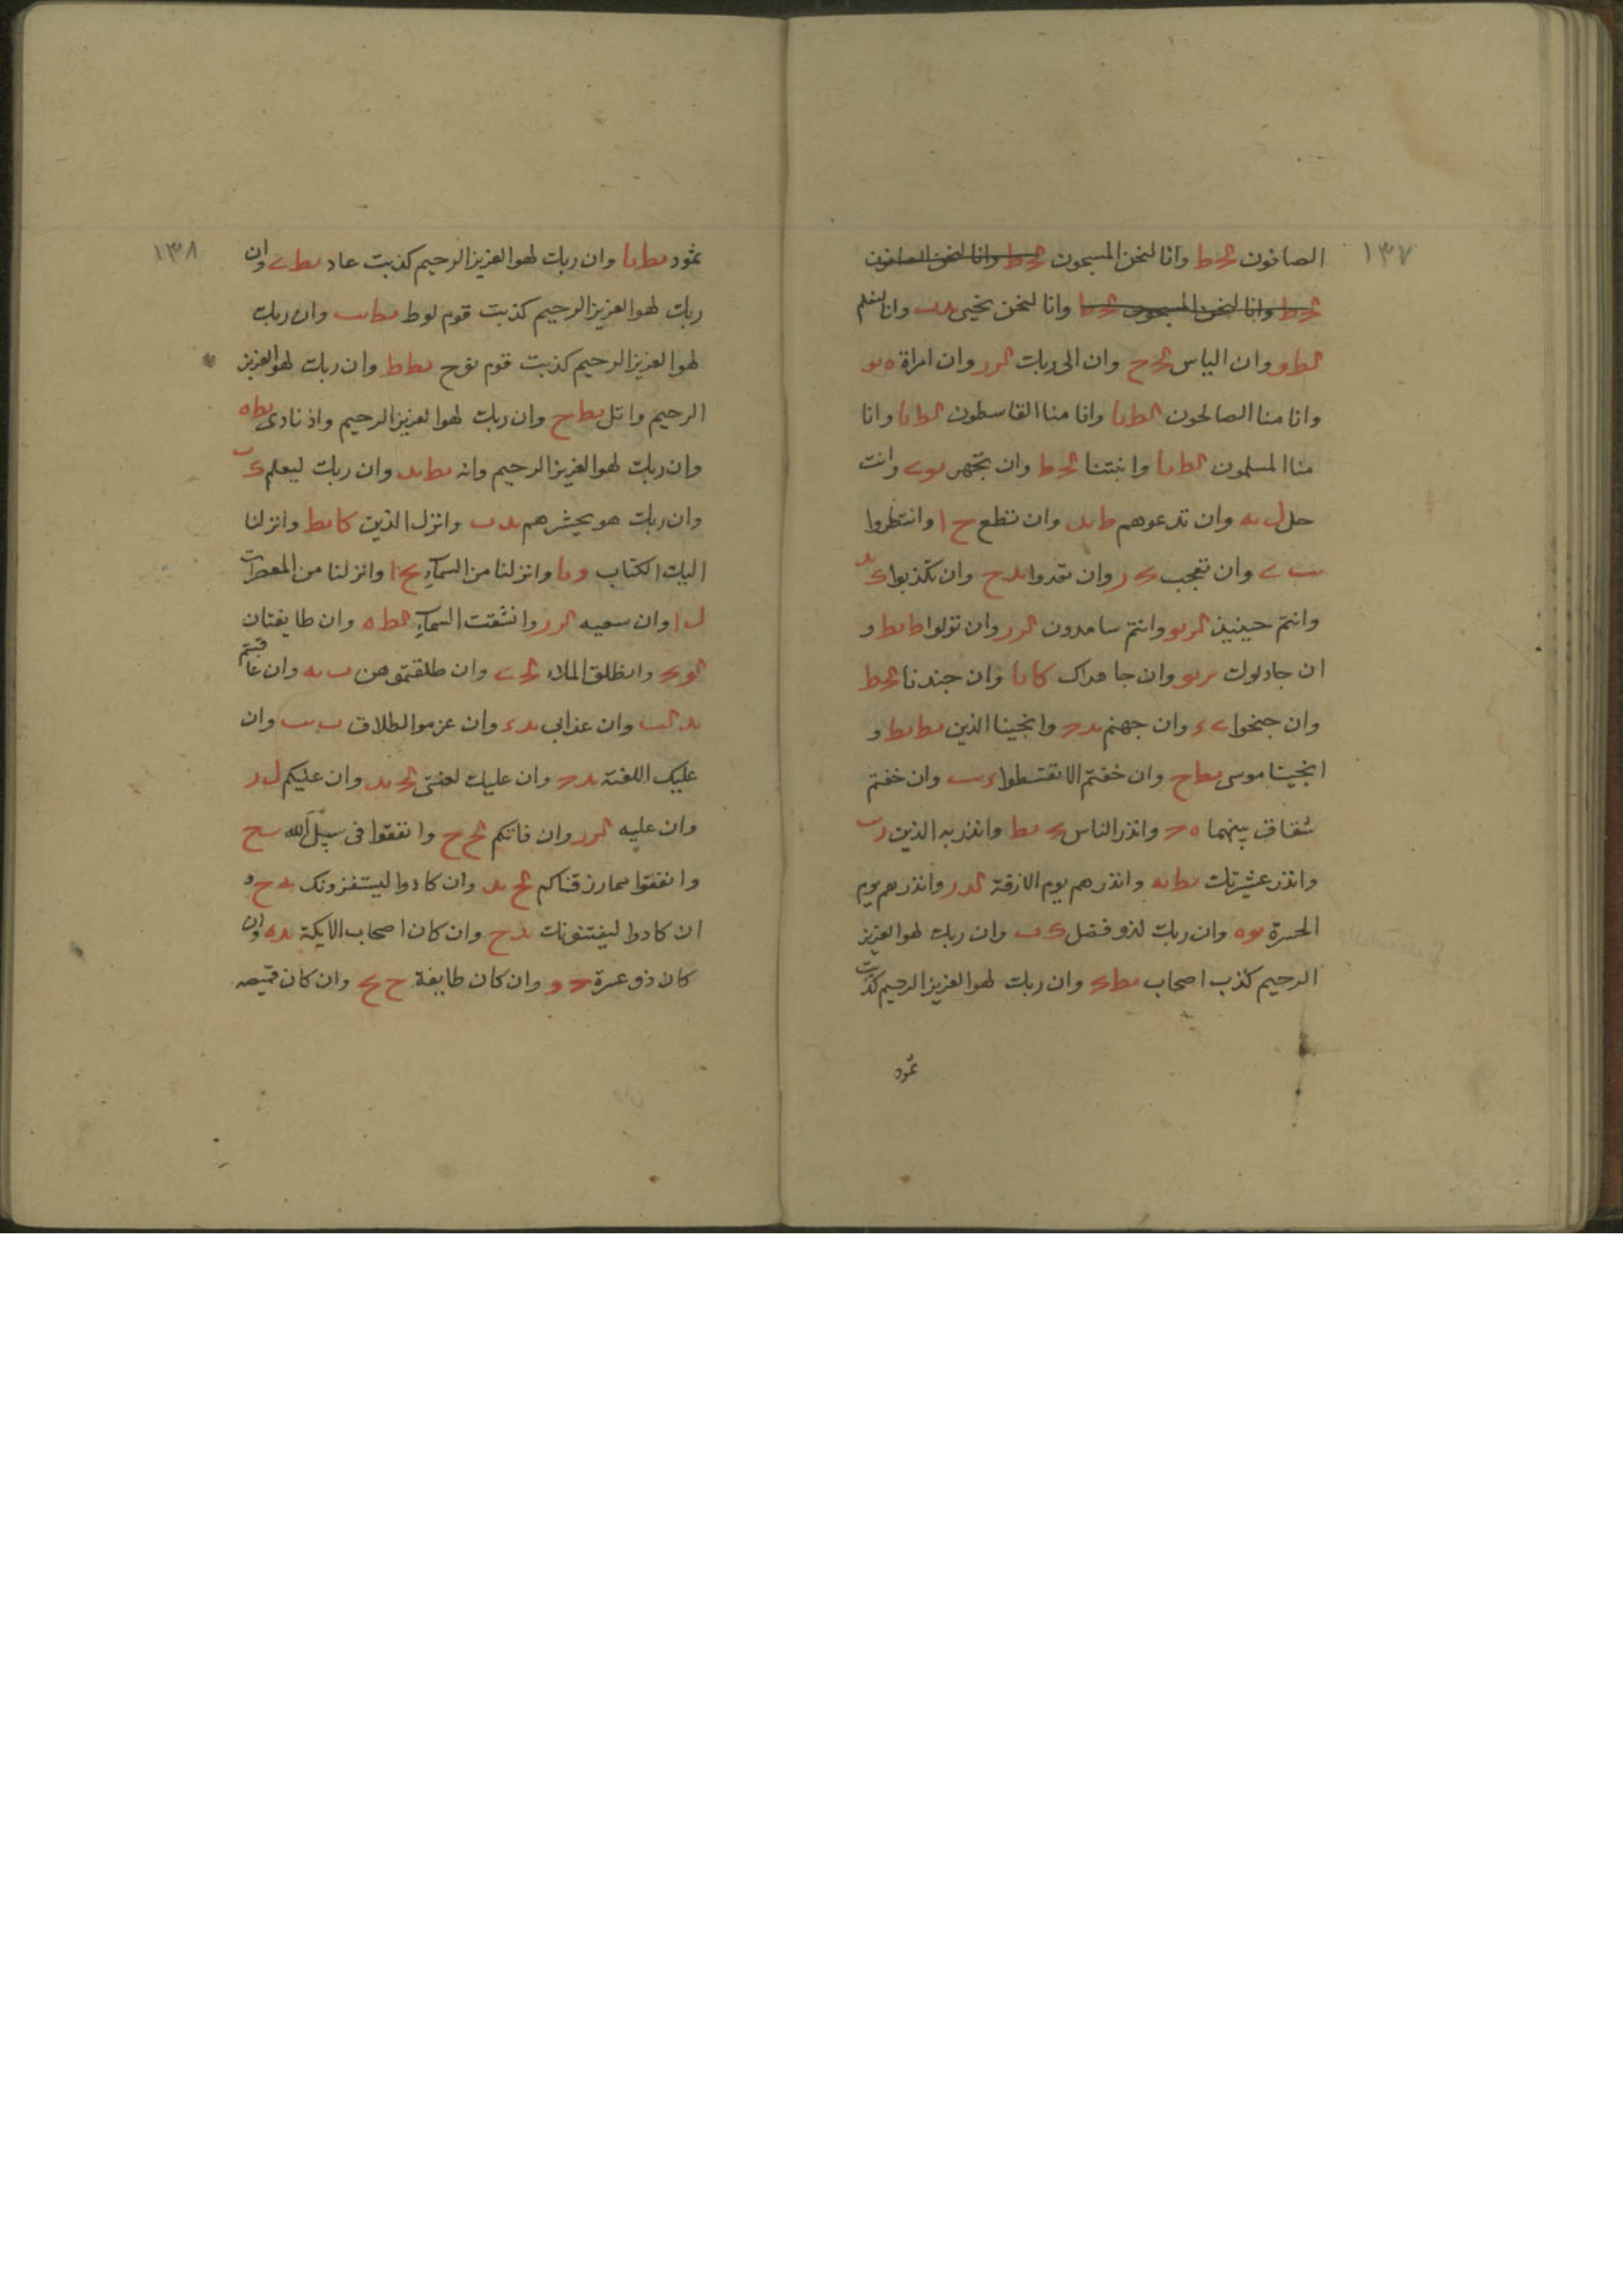 ١٣٧
الصافون لح ط وانا لنحن المسبحون لح ط وانا لنحن الصافون
لح ط وانا لنحن المسبحون لح ط وانا لنحن نحيى ىد ب وانا لنعلم
لط و وان الياس لح ح وان الى ربك لر ر وان امراة ه ىو
وانا منا الصالحون لط ىا وانا منا القاسطون لط ىا وانا
منا المسلمون لط ىا وانبتنا لح ط وان تجهر ىو ے وانت
حل ل ىه وان تدعوهم ط ىد وان تطع ح ا وانتظروا
ىب ے وان تعجب ر وان تعدوا ىد ح وان تكذبوا
وانتم حينيذ لر ىو وانتم سامدون لر ر وان تولوا ط ىط و
ان جادلوك ىر ىو وان جاهداك كا ىا وان جندنا لح ط
وان جنحوا ے ء وان جهنم ىد وانجينا الذين ىط ىط و
انجينا موسى ىط ح وان خفتم الا تقسطوا ء ب وان خفتم
شقاق بينهما ه وانذر الناس ىط وانذر به الذين ر ب
وانذر عشيرتك ىط ىه وانذرهم يوم الازفة لد ر وانذرهم يوم
الحسرة ىو ه وان ربك لذو فضل ك ب وان ربك لهو العزيز
الرحيم كذب اصحاب ىط وان ربك لهو العزيز الرحيم كذبت
ثمود
١٣٨
ثمود ىط ىا وان ربك لهو العزيز الرحيم كذبت عاد ىط ے وان
ربك لهو العزيز الرحيم كذبت قوم لوط ىط ىب وان ربك
لهو العزيز الرحيم كذبت قوم نوح ىط ط وان ربك لهو العزيز
الرحيم واتل ىط ح وان ربك لهو العزيز الرحيم واذ نادى ىط ه
وان ربك لهو العزيز الرحيم وانه ىط ىد وان ربك ليعلم ك ب
وان ربك هو يحشرهم ىد ب وانزل الذين كا ىط وانزلنا
اليك الكتاب و ىا وانزلنا من السمآء ىح ا وانزلنا من المعصرات
ل ا وان سعيه لر ر وانشقت السمآء لط ه وان طايفتان
لو وانطلق الملاء لح ے وان طلقتموهن ب ىه وان عاقبتم
ىد لب وان عذابى ىد ء وان عزموا الطلاق ب ىب وان
عليك اللعنة ىد وان عليك لعنتى لح ىد وان عليكم ل ر
وان عليه لر ر وان فاتكم لح ح وانفقوا فى سبيل الله ىب ح
وانفقوا مما رزقناكم لح ىد وان كادوا ليستفزونك ىد ح و
ان كادوا ليفتنونك ىد ح وان كان اصحاب الايكة ىد ه وان
كان ذو عسرة و وان كان طايفة ح وان كان قميصه